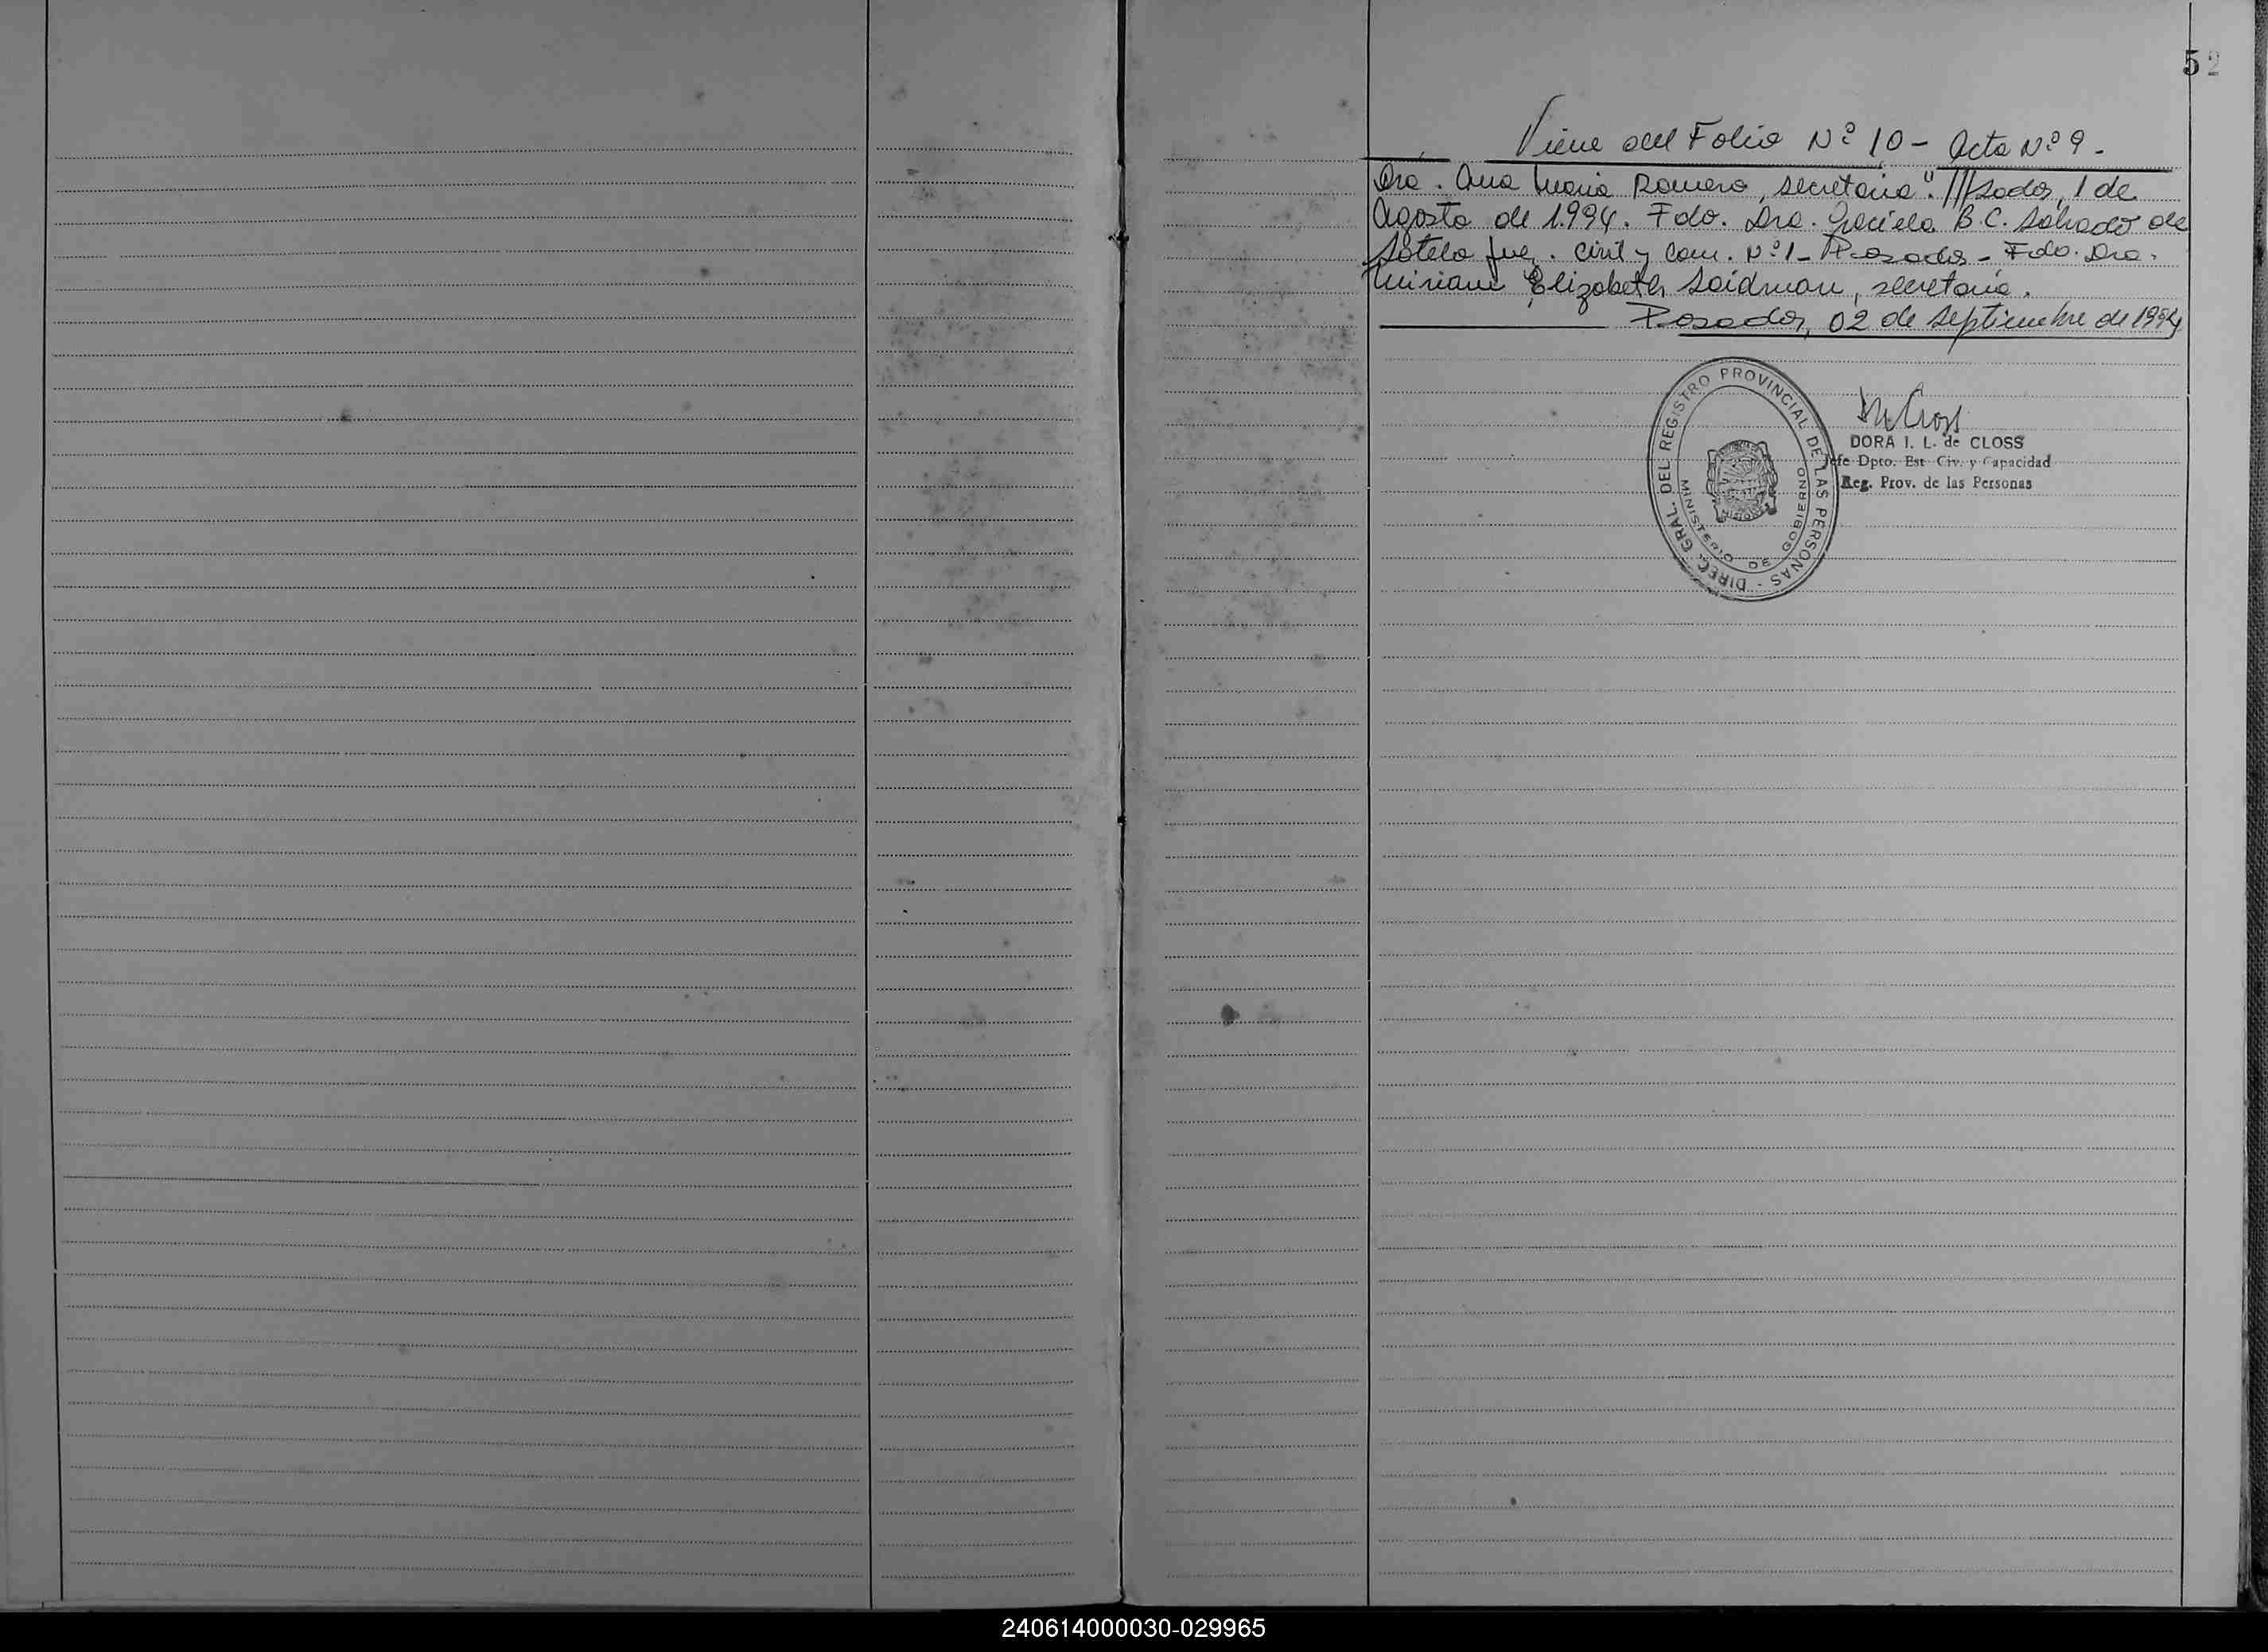 52
Viene del Folio Nº 10 - Acta Nº 9 -
Dra. Ana María Romero, secretaria". ///sadas, 1 de
Agosto de 1.994. Fdo. Dra. Graciela B.C. Salvado de
Sotelo Juez. Civil y Com. Nº 1 - Posadas - Fdo. Dra.
Miriam Elizabeth Saidman, secretaria.
Posadas, 02 de septiembre de 1994
DIREC. GRAL. DEL REGISTRO PROVINCIAL DE LAS PERSONAS -
MINISTERIO DE GOBIERNO
DORA I. L. de CLOSS
Jefe Dpto. Est Civ. y Capacidad
Reg. Prov. de las Personas
240614000030-029965